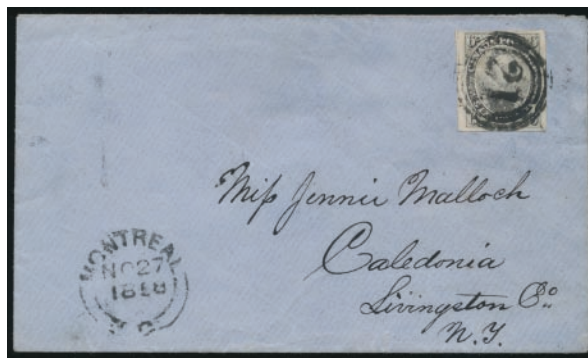 21
Miſs Jennie Malloch
Caledonia
Livingston Co.
N.Y.
MONTREAL
NO 27
1858